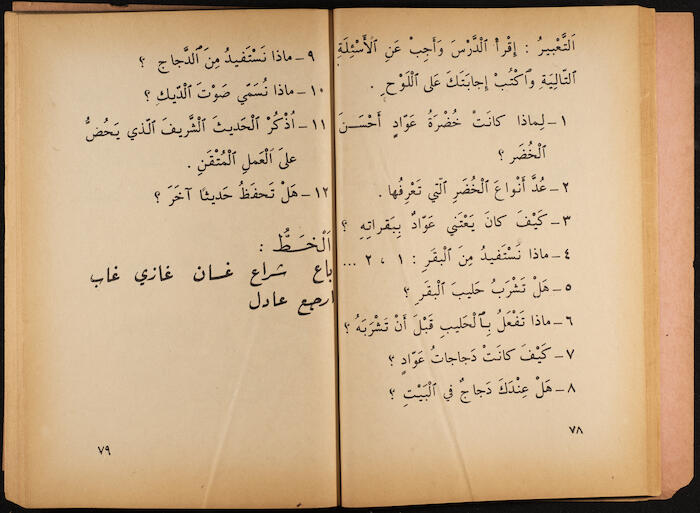 اَلتَّعْبِيرُ : إِقْرَأْ اَلدَّرْسَ وَأَجِبْ عَنِ اَلْأَسْئِلَةِ
اَلتَّالِيَةِ وَاَكْتُبْ إِجابَتَكَ عَلىَ اَللَّوْحِ .
١ – لِماذا كانَتْ خُضْرَةُ عَوّادٍ أَحْسَنَ
اَلْخُضَر ؟
٢ – عُدَّ أَنْواعَ اَلْخُضَرِ اَلَّتي تَعْرِفُها .
٣ – كَيْفَ كانَ يَعْتَني عَوّادٌ بِبَقراتِهِ ؟
٤ – ماذا نَسْتَفيدُ مِنَ اَلْبَقَرِ : ١ ، ٢ ...
٥ – هَلْ تَشْرَبُ حَليبَ اَلْبَقَرِ ؟
٦ – ماذا تَفْعَلُ بِاَلْحَليبِ قَبْلَ أَنْ تَشْرَبَهُ ؟
٧ – كَيْفَ كانَتْ دَجاجاتُ عَوّادٍ ؟
٨ – هَلْ عِنْدَكَ دَجاجٌ في اَلْبَيْتِ ؟
٧٨
٩ – ماذا نَسْتَفيدُ مِنَ اَلدَّجاجِ ؟
١٠ – ماذا نُسَمّي صَوْتَ اَلدّيكِ ؟
١١ – اُذْكُرْ اَلْحَديثَ اَلشَّريفَ اَلَّذي يَحُضُّ
عَلىَ اَلْعَملِ اَلْمُتْقَنِ .
١٢ – هَلْ تَحفَظُ حَديثًا آخَرَ ؟
اَلْخَطُّ :
باع شراع غسان غازي غاب
ارجع عادل
٧٩